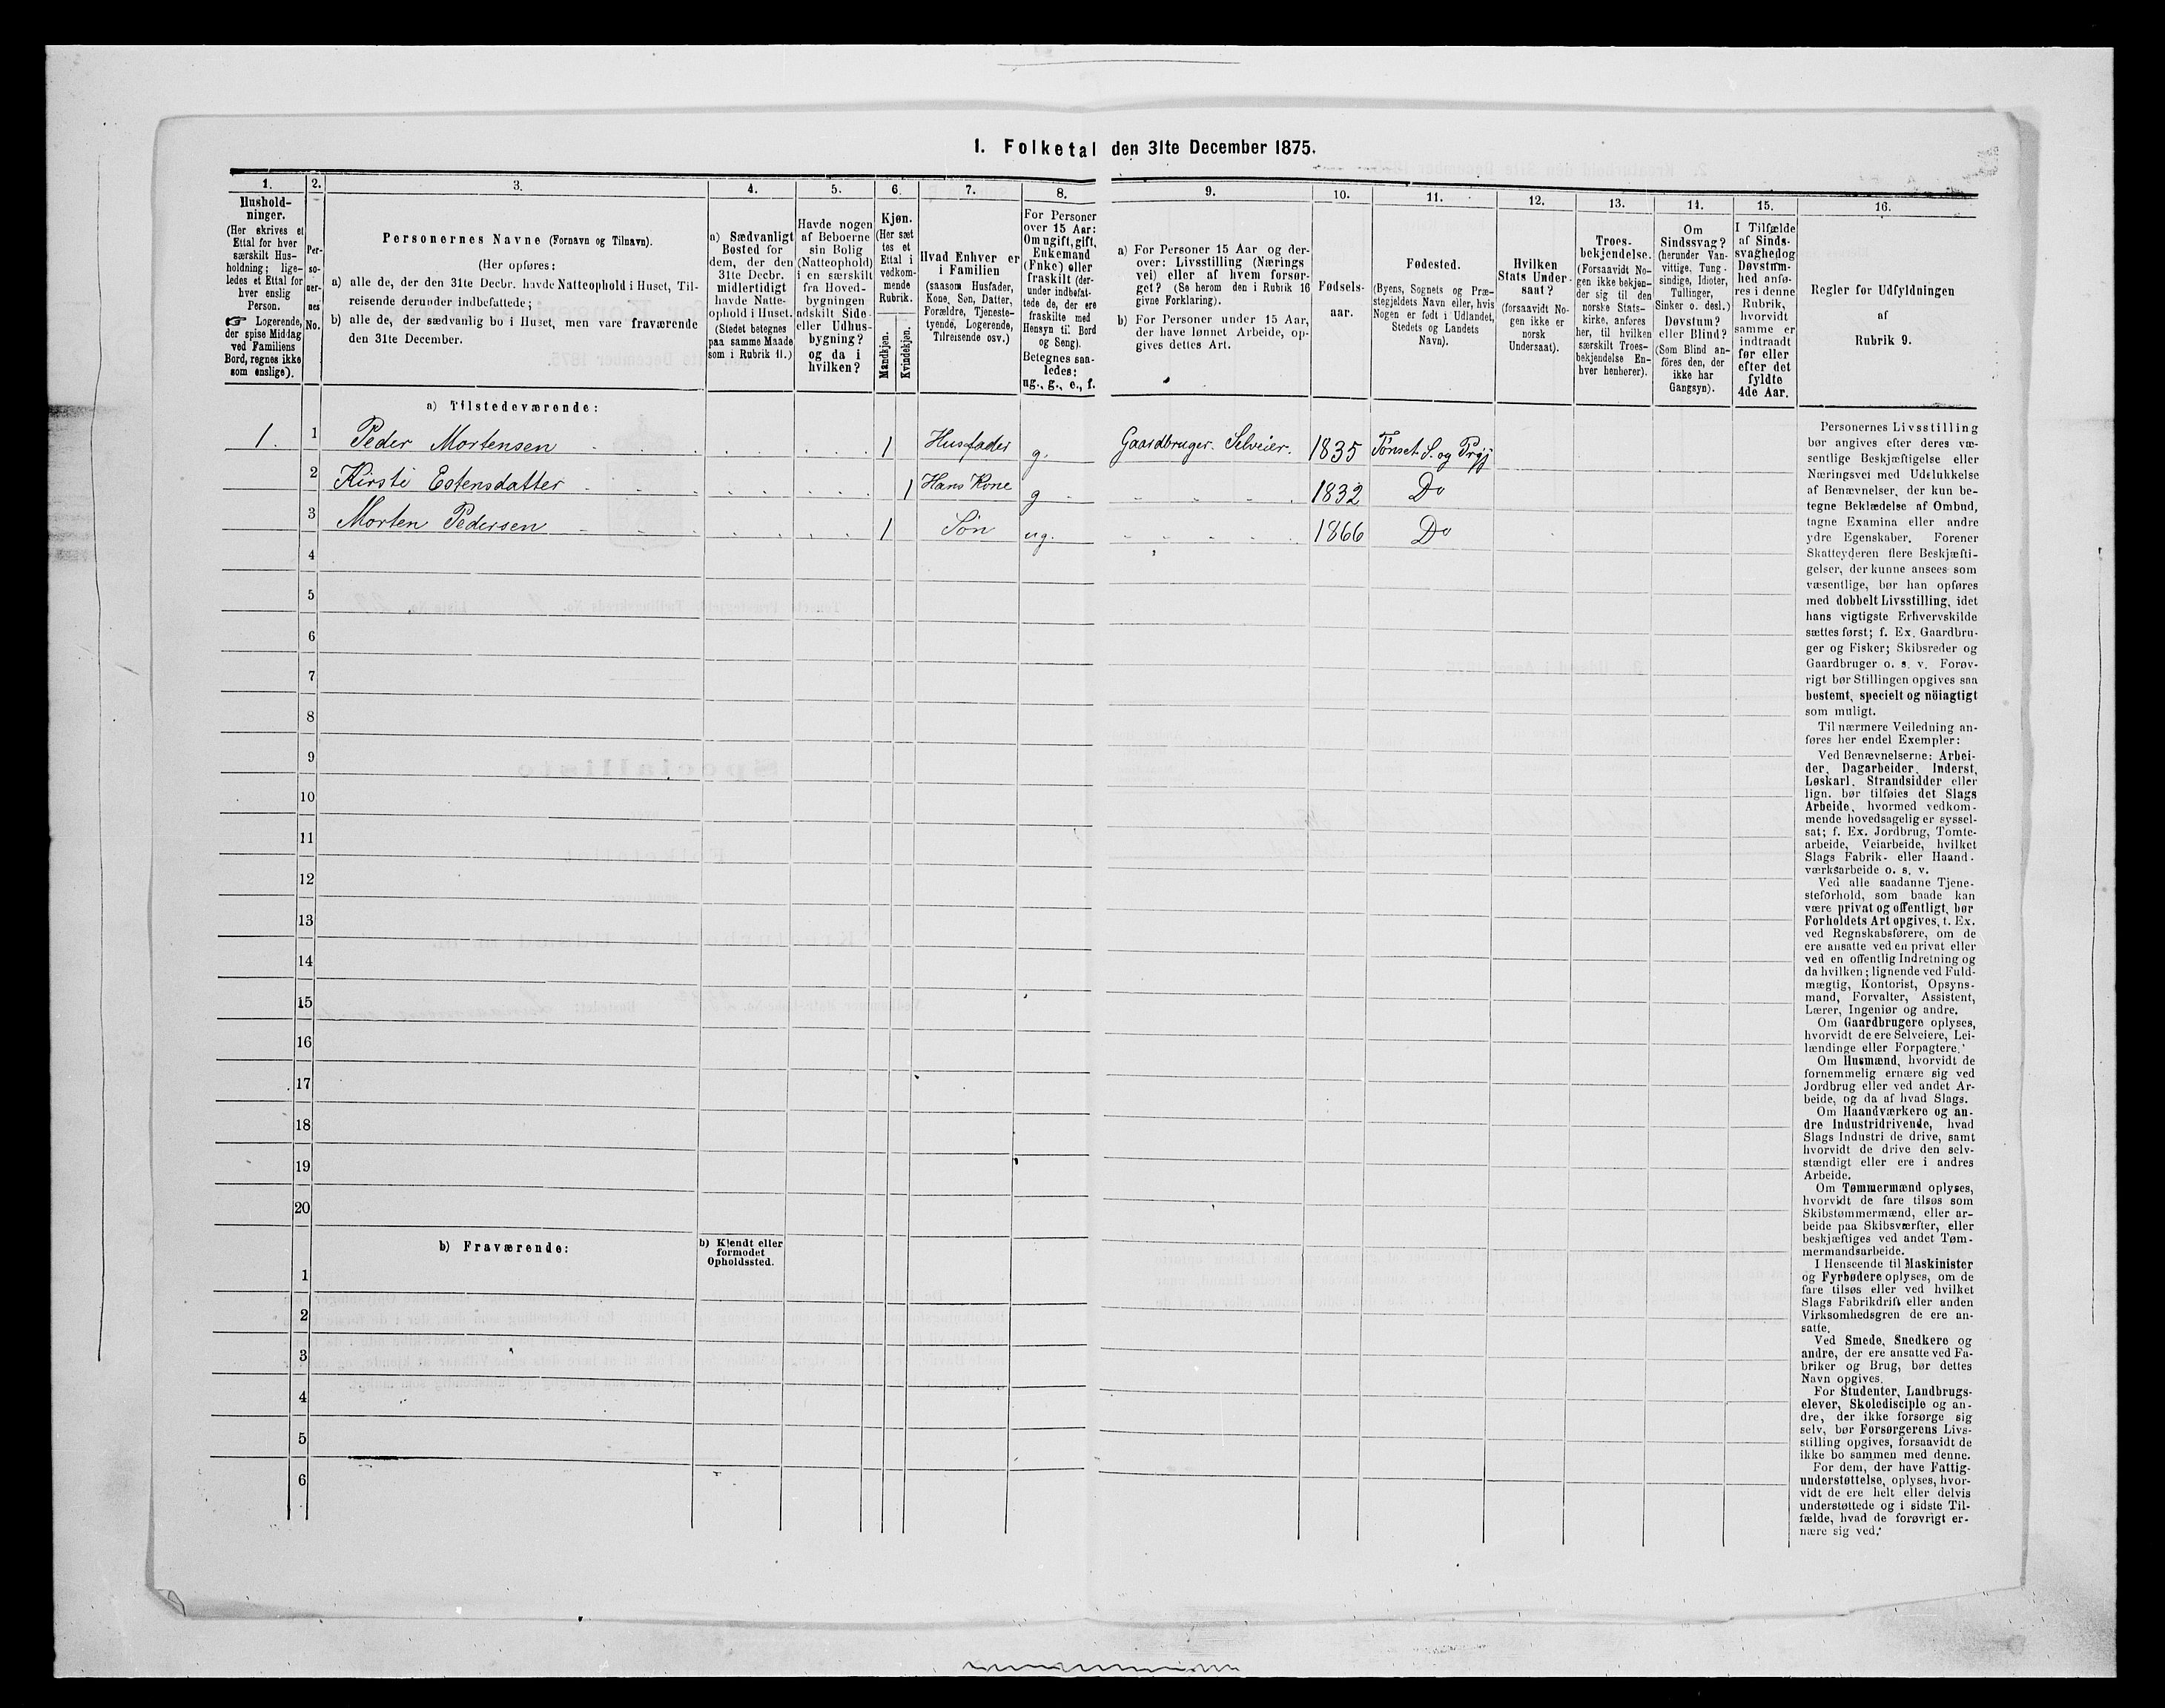 1. Folketal den 31te December 1875.
1.
2.
3.
4.
5.
6.
7.
8.
9.
10.
11.
12.
13.
14.
15.
16.
Hushold-
ninger.
(Her skrives et
Ettal for hver
særskilt Hus-
holdning; lige-
ledes et Ettal for
hver enslig
Person.
☞ Logerende,
der spise Middag
ved Familiens
Bord, regnes ikke
som enslige).
Per-
so-
ner-
nes
No.
Personernes Navne (Fornavn og Tilnavn).
(Her opføres:
a) alle de, der den 31te Decbr. havde Natteophold i Huset, Til-
reisende derunder indbefattede;
b) alle de, der sædvanlig bo i Huset, men vare fraværende
den 31te December.
a) Sædvanligt
Bosted for
dem, der den
31te Decbr.
midlertidigt
havde Natte-
ophold i Huset.
(Stedet betegnes
paa samme Maade
som i Rubrik 11.)
Havde nogen
af Beboerne
sin Bolig
(Natteophold)
i en særskilt
fra Hoved-
bygningen
adskilt Side-
eller Udhus-
bygning?
og da i
hvilken?
Kjøn.
(Her sæt
tes et
Ettal i
vedkom-
mende
Rubrik.
Mandkjøn.
Kvindekjøn.
Hvad Enhver er
i Familien
(saasom Husfader,
Kone, Søn, Datter,
Forældre, Tjeneste-
tyende, Logerende,
Tilreisende osv.)
For Personer
over 15 Aar:
Om ugift, gift,
Enkemand
(Enke) eller
fraskilt (der-
under indbefat-
tede de, der ere
fraskilte med
Hensyn til Bord
og Seng).
Betegnes saa-
ledes:
ug., g., e., f.
a) For Personer 15 Aar og der-
over: Livsstilling (Nærings
vei) eller af hvem forsør-
get? (Se herom den i Rubrik 16
givne Forklaring).
b) For Personer under 15 Aar,
der have lønnet Arbeide, op-
gives dettes Art.
Fødsels-
aar.
Fødested.
(Byens, Sognets og Præ-
stegjeldets Navn eller, hvis
Nogen er født i Udlandet,
Stedets og Landets
Navn).
Hvilken
Stats Under-
saat?
(forsaavidt No-
gen ikke er
norsk
Undersaat).
Troes-
bekjendelse.
(Forsaavidt No-
gen ikke bekjen-
der sig til den
norske Stats-
kirke, anføres
her, til hvilken
særskilt Troes-
bekjendelse En-
hver henhører).
Om
Sindssvag?
(herunder Van-
vittige, Tung-
sindige, Idioter,
Tullinger,
Sinker o. desl.)
Døvstum?
eller Blind?
(Som Blind an-
föres den, der
ikke har
Gangsyn).
I Tilfælde
af Sinds-
svaghed og
Døvstum-
hed anfø-
res i denne
Rubrik,
hvorvidt
samme er
indtraadt
før eller
efter det
fyldte
4de Aar.
Regler for Udfyldningen
af
Rubrik 9.
a) Tilstedeværende:
1. 1 Peder Mortensen 1 Husfader g. Gaardbruger. Selveier. 1835 Tønset S. og Prgj
2 Kirsti Estensdatter 1 Hans Kone g 1832 Do
3 Morten Pedersen 1 Søn ug. 1866 Do
4
5
6
7
8
9
10
11
12
13
14
15
16
17
18
19
20
b) Fraværende:
b) Kjendt eller
formodet
Opholdssted.
1
2
3
4
5
6
Personernes Livsstilling
bør angives efter deres væ-
sentlige Beskjæftigelse eller
Næringsvei med Udelukkelse
af Benævnelser, der kun be-
tegne Beklædelse af Ombud,
tagne Examina eller andre
ydre Egenskaber. Forener
Skatteyderen flere Beskjæfti-
gelser, der kunne ansees som
væsentlige, bør han opføres
med dobbelt Livsstilling, idet
hans vigtigste Erhvervskilde
sættes først; f. Ex. Gaardbru-
ger og Fisker; Skibsreder og
Gaardbruger o. s. v. Forøv-
rigt bør Stillingen opgives saa
bestemt, specielt og nöiagtigt
som muligt.
Til nærmere Veiledning an-
føres her endel Exempler:
Ved Benævnelserne: Arbei-
der, Dagarbeider, Inderst,
Løskarl, Strandsidder eller
lign. bør tilføies det Slags
Arbeide, hvormed vedkom-
mende hovedsagelig er syssel-
sat; f. Ex. Jordbrug, Tomte-
arbeide, Veiarbeide, hvilket
Slags Fabrik- eller Haand-
værksarbeide o. s. v.
Ved alle saadanne Tjene-
steforhold, som baade kan
være privat og offentligt, bør
Forholdets Art opgives, t. Ex.
ved Regnskabsførere, om de
ere ansatte ved en privat eller
ved en offentlig Indretning og
da hvilken; lignende ved Fuld-
mægtig, Kontorist, Opsyns-
mand, Forvalter, Assistent,
Lærer, Ingeniør og andre.
Om Gaardbrugere oplyses,
hvorvidt de ere Selveiere, Lei-
lændinge eller Forpagtere.
Om Husmænd, hvorvidt de
fornemmelig ernære sig ved
Jordbrug eller ved andet Ar-
beide, og da af hvad Slags.
Om Haandværkere og an-
dre Industridrivende, hvad
Slags Industri de drive, samt
hvorvidt de drive den selv-
stændigt eller ere i andres
Arbeide.
Om Tømmermænd oplyses,
hvorvidt de fare tilsøs som
Skibstømmermænd, eller ar-
beide paa Skibsværfter, eller
beskjæftiges ved andet Tøm-
mermandsarbeide.
I Henseende til Maskinister
og Fyrbødere oplyses, om de
fare tilsøs eller ved hvilket
Slags Fabrikdrift eller anden
Virksomhedsgren de ere an-
satte.
Ved Smede, Snedkere og
andre, der ere ansatte ved Fa-
briker og Brug, bør dettes
Navn opgives.
For Studenter, Landbrugs-
elever, Skoledisciple og an-
dre, der ikke forsørge sig
selv, bør Forsørgerens Livs-
stilling opgives, forsaavidt de
ikke bo sammen med denne.
For dem, der have Fattig-
understøttelse, oplyses, hvor-
vidt de ere helt eller delvis
understøttede og i sidste Til-
fælde, hvad de forøvrigt er-
nære sig ved.